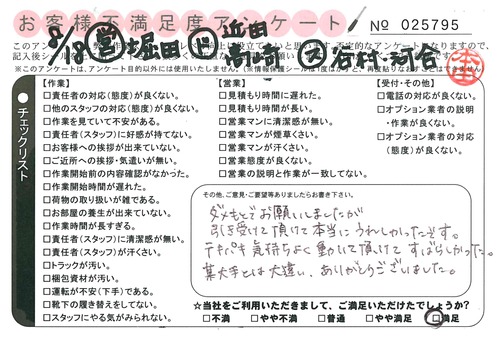 お客様不満足度アンケート
№ 025795
8/18 営 堀田 ド 近田 高崎 ス 谷村・河合
※このアンケートは、アンケート目的以外には使用いたしません。
チェックリスト
【作業】
□責任者の対応（態度）が良くない。
□他のスタッフの対応（態度）が良くない。
□作業を見ていて不安がある。
□責任者（スタッフ）に好感が持てない。
□お客様への挨拶が出来ていない。
□ご近所への挨拶・気遣いが無い。
□作業開始前の内容確認がなかった。
□作業開始時間が遅れた。
□荷物の取り扱いが雑である。
□お部屋の養生が出来ていない。
□作業時間が長すぎる。
□責任者（スタッフ）に清潔感が無い。
□責任者（スタッフ）が汗くさい。
□トラックが汚い。
□梱包資材が汚い。
□運転が不安（下手）である。
□靴下の履き替えをしてない。
□スタッフにやる気がみられない。
【営業】
□見積もり時間に遅れた。
□見積もり時間が長い。
□営業マンに清潔感が無い。
□営業マンが煙草くさい。
□営業マンが汗くさい。
□営業態度が良くない。
□営業の説明と作業が一致してない。
【受付・その他】
□電話の対応が良くない。
□オプション業者の説明
・作業が良くない。
□オプション業者の対応
（態度）が良くない。
その他、ご意見・ご要望等ありましたらお書き下さい。
ダメもとでお願いしましたが
引き受けて頂けて本当にうれしかったです。
テキパキ気持ちよく動いて頂けて すばらしかった。
某大手とは大違い、ありがとうございました。
★当社をご利用いただきまして、ご満足いただけたでしょうか？
□不満 □やや不満 □普通 □やや満足 □満足